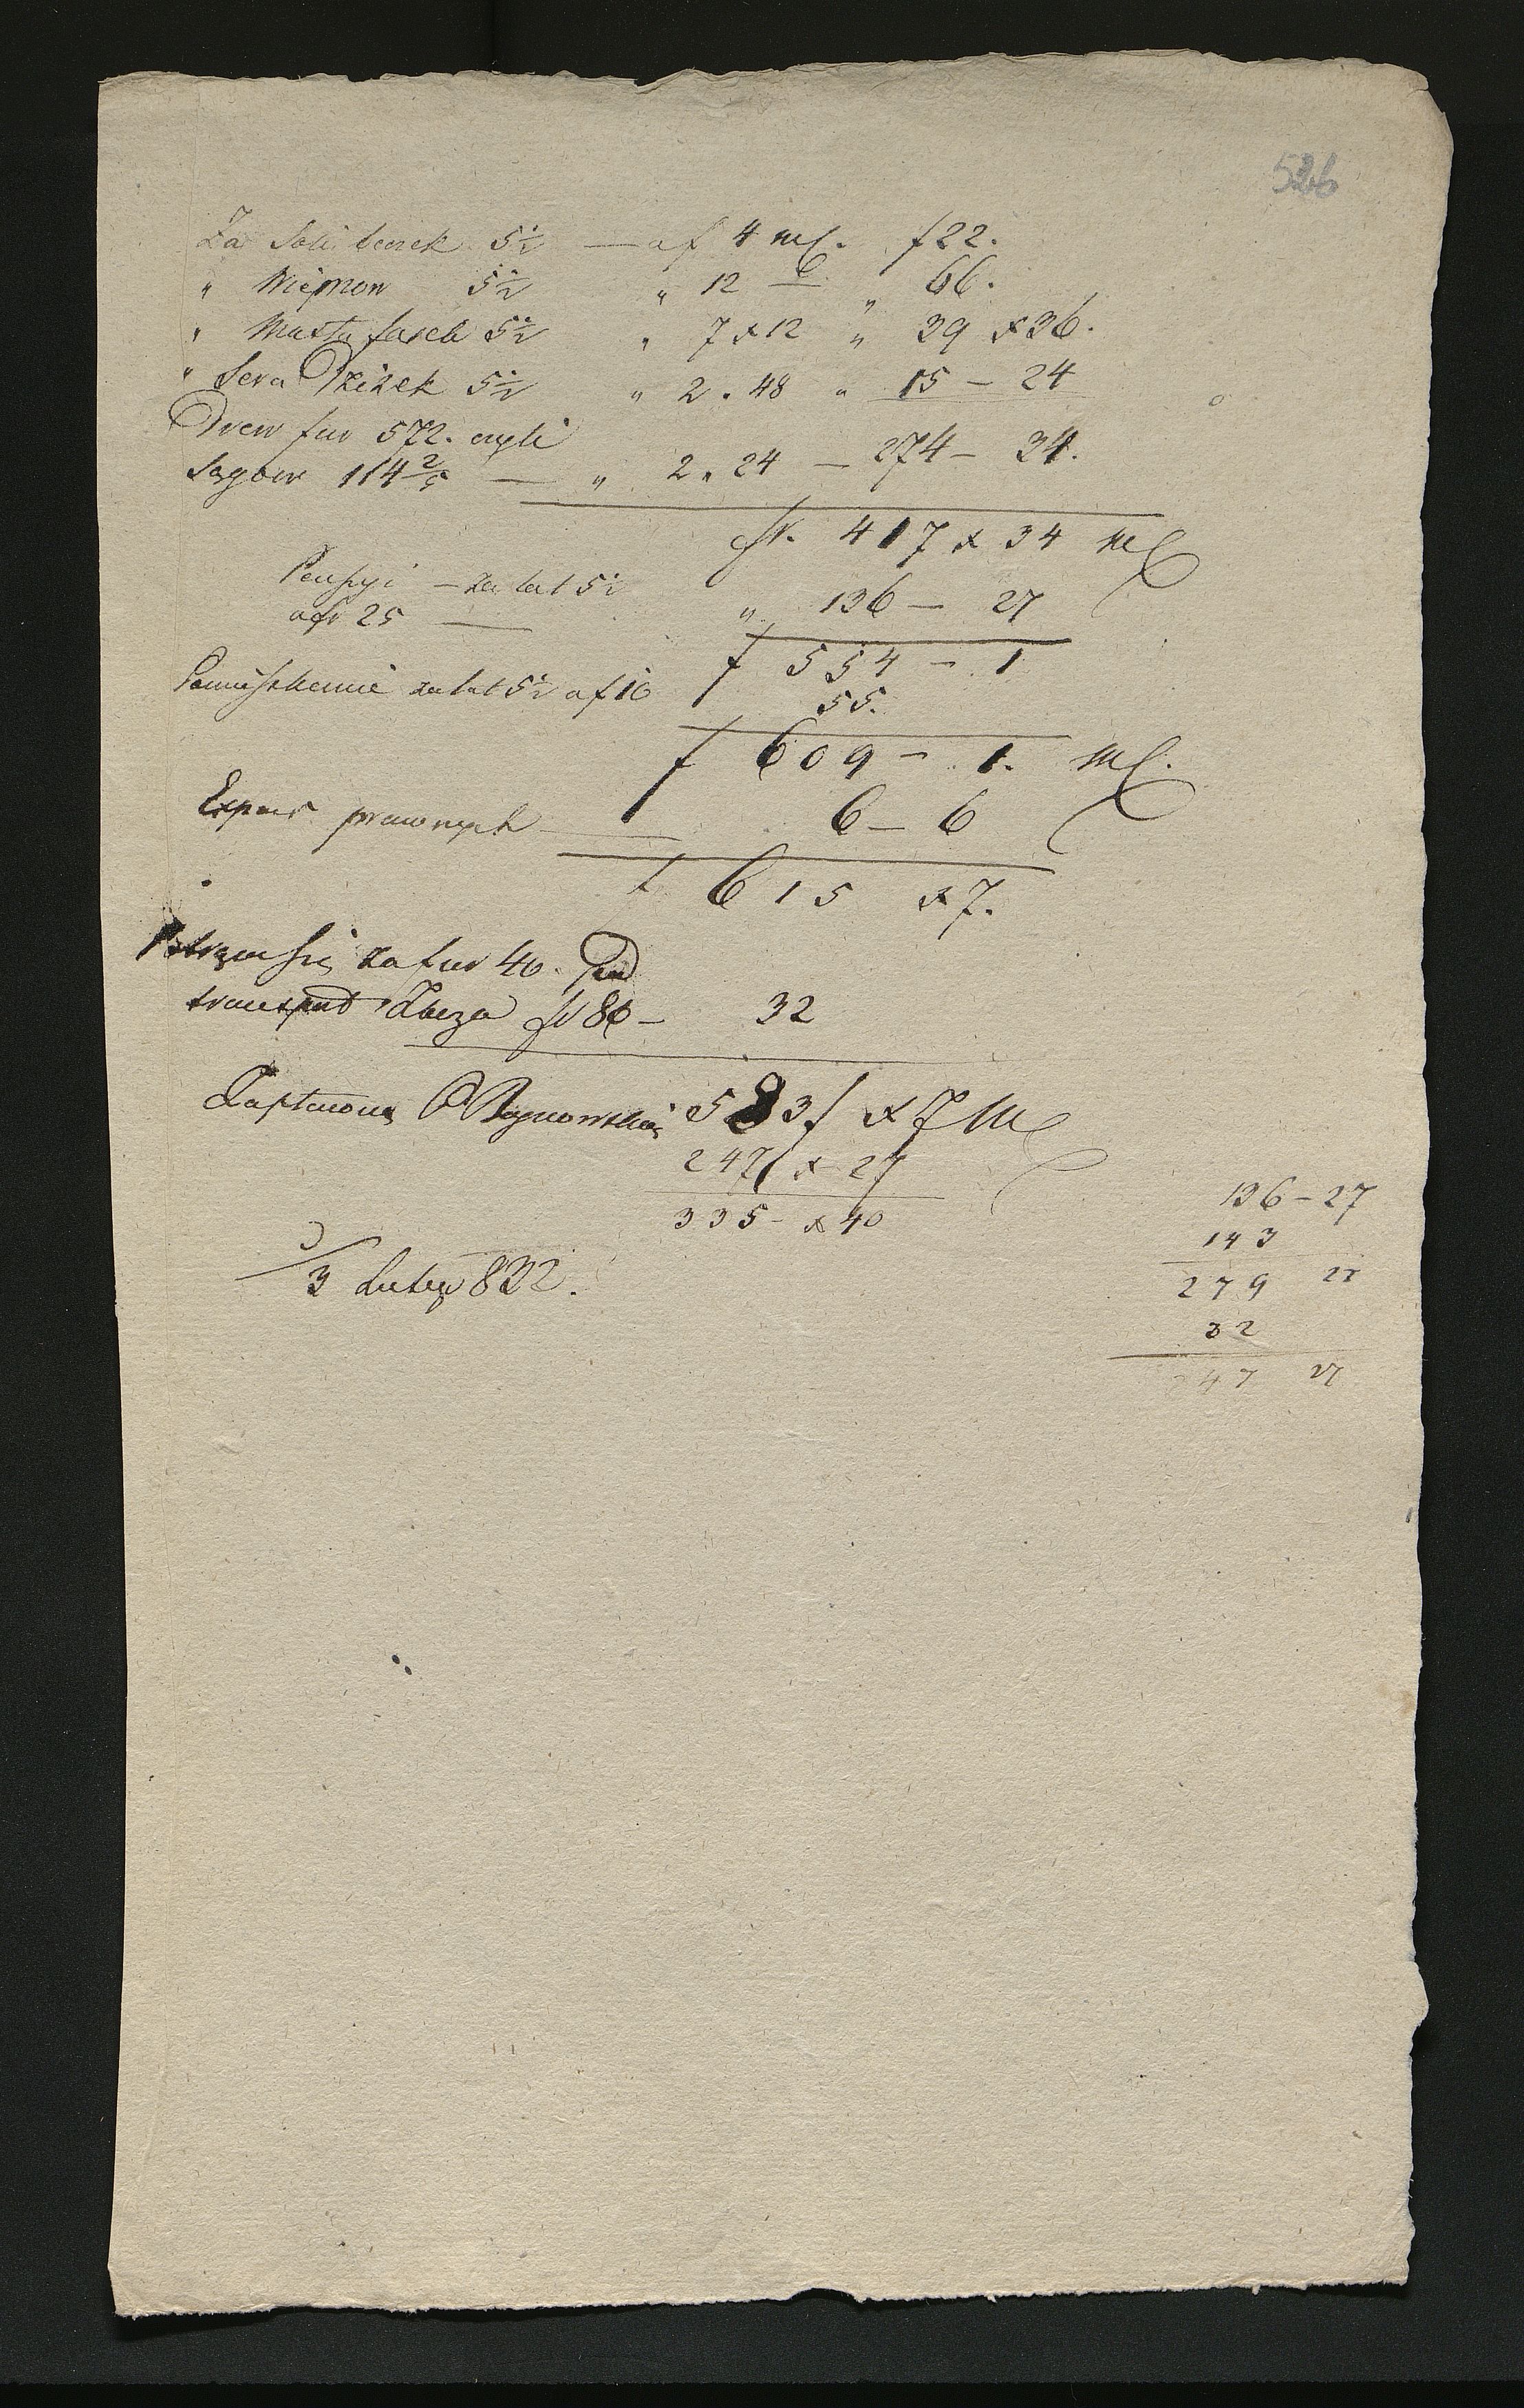 526
Za Soli beczek 5½ — a f 4 M. f 22.
" Mięson 5½ " 12 — " 66.
" Masła fasek 5½ " 7 x 12 " 39 x 36.
" Sera Dzieżek 5½ " 2 " 48 " 15 — 24
Drew fur 572. czyli
Sągow 114 2/5 — " 2 " 24 — 274 — 34.
fr. 417 x 34 M
Pensyi — za lat 5½
a fr 25 — " 136 — 27
f 554 — 1
Pomieszkanie za lat 5½ a f 10 55.
f 609 — 1. M.
Expens prawnych — 6 — 6
f 615 x 7.
Potrąca się za fur 40. pod
transport Zboża fr 80 — 32
Zapłacono O 583 f x 7 M
247 f x 27
335 — x 40
3 Lutego 832.
136 — 27
143
279 27
32
247 27